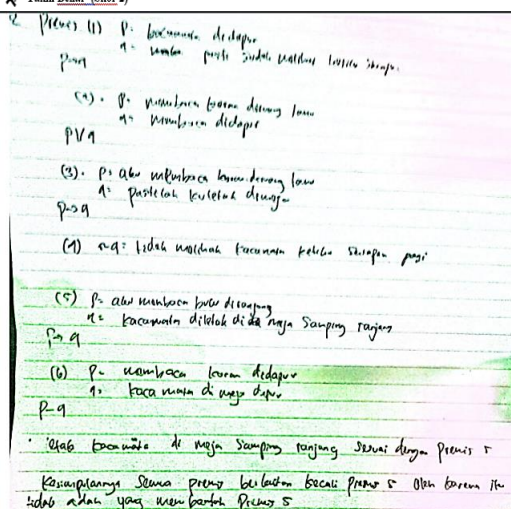 2. Premis (1) P = kacamata didapur
q = pasti sudah melihat
p→q
(2). P = membaca koran diruang tamu
q = membaca didapur
p∨q
(3). P = aku membaca koran diruang tamu
q = pastilah kuletak dimeja
p→q
(4) ~q = tidak melihat kacamata ketika sarapan pagi
(5) P = aku membaca buku diranjang
q = kacamata diletak di meja samping ranjang
p→q
(6) P = membaca koran didapur
q = kaca mata di meja dapur
p→q
letak kacamata di meja samping ranjang sesuai dengan premis 5
Kesimpulannya semua premis berkaitan kecuali premis 5 oleh karena itu
tidak adalah yang membantah Premis 5